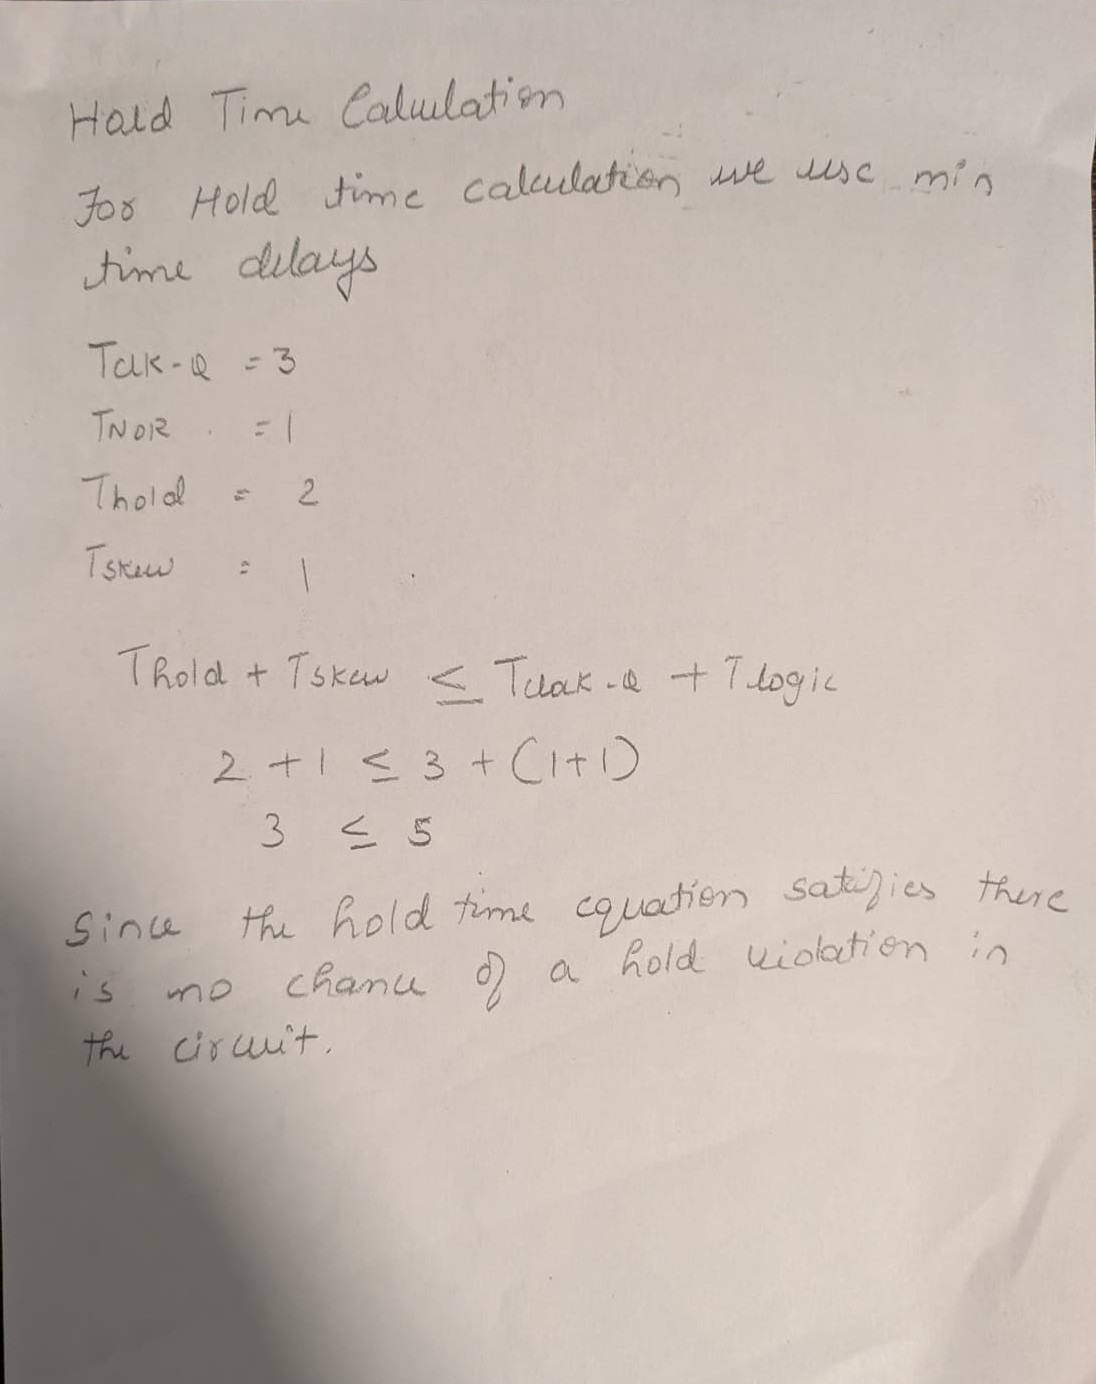 Hold Time Calculation
For Hold time calculation we use min
time delays
Tclk-Q = 3
TNOR = 1
Thold = 2
Tskew = 1
Thold + Tskew ≤ Tclock-Q + Tlogic
2 + 1 ≤ 3 + (1+1)
3 ≤ 5
Since the hold time equation satifies there
is no chance of a hold violation in
the circuit.